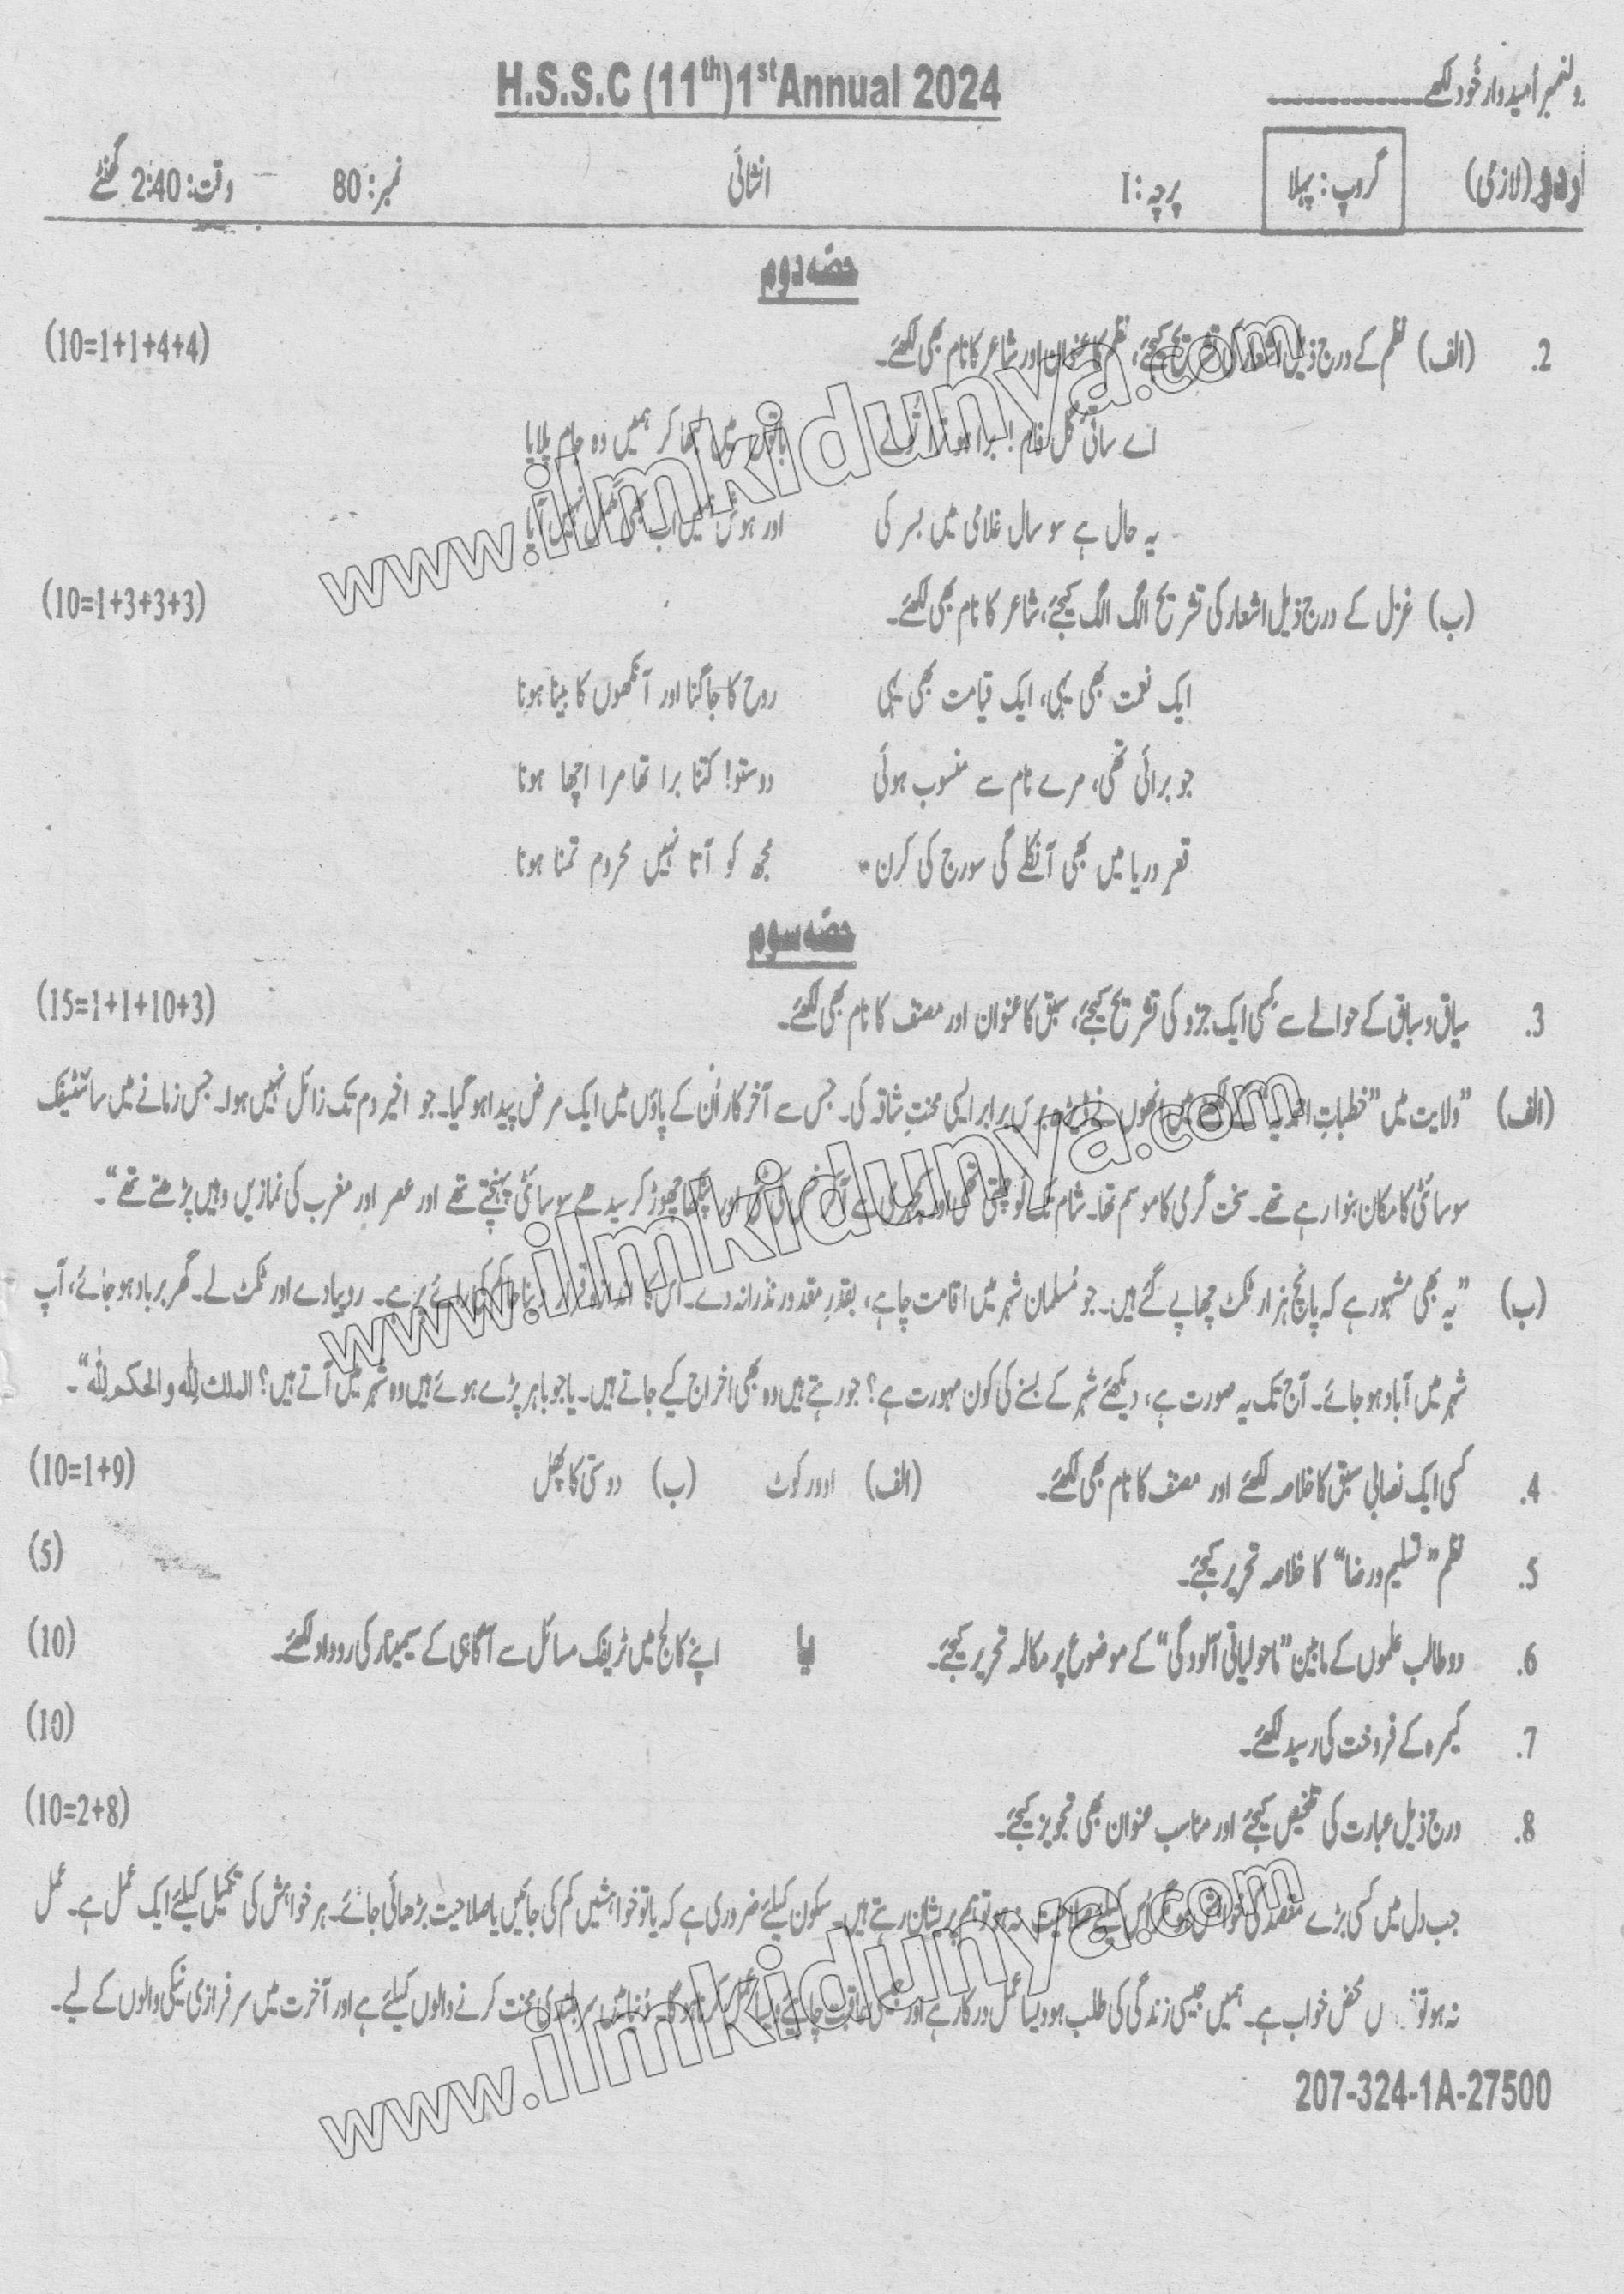 H.S.S.C (11th) 1st Annual 2024
رولنمبر اُمیدوار خُود لکھے
اردو (لازمی) گروپ: پہلا پرچہ: I انشائی نمبر: 80 وقت: 2:40 گھنٹے
حصّہ دوم
2. (الف) نظم کے درج ذیل اشعار کی تشریح کیجئے، نظم کا عنوان اور شاعر کا نام بھی لکھئے۔ (10=1+1+4+4)
اے ساقی گل فام! برا ہو ترا تُو نے باتوں میں لبھا کر ہمیں وہ جام پلایا
یہ حال ہے سو سال غلامی میں بسر کی اور ہوش ہمیں اب بھی مکمل نہیں آیا
(ب) غزل کے درج ذیل اشعار کی تشریح الگ الگ کیجئے، شاعر کا نام بھی لکھئے۔ (10=1+3+3+3)
ایک نعمت بھی یہی، ایک قیامت بھی یہی روح کا جاگنا اور آنکھوں کا بینا ہونا
جو برائی تھی، مرے نام سے منسوب ہوئی دوستو! کتنا برا تھا مرا اچھا ہونا
قعرِ دریا میں بھی آ نکلے گی سورج کی کرن مجھ کو آتا نہیں محروم تمنا ہونا
حصّہ سوم
3. سیاق و سباق کے حوالے سے کسی ایک جزو کی تشریح کیجئے، سبق کا عنوان اور مصنف کا نام بھی لکھئے۔ (15=1+1+10+3)
(الف) ”ولایت میں ”خطباتِ احمدیہ“ کے لکھنے میں انھوں نے ڈیڑھ برس برابر ایسی محنتِ شاقہ کی۔ جس سے آخر کار اُن کے پاؤں میں ایک مرض پیدا ہو گیا۔ جو اخیر دم تک زائل نہیں ہوا۔ جس زمانے میں سائنٹیفک
سوسائٹی کا مکان بنوا رہے تھے۔ سخت گرمی کا موسم تھا۔ شام تک لُو چلتی تھی اور کچہری سے آ کر خس کی ٹٹی اور پنکھا چھوڑ کر سیدھے سوسائٹی پہنچتے تھے اور عصر اور مغرب کی نمازیں وہیں پڑھتے تھے“۔
(ب) ”یہ بھی مشہور ہے کہ پانچ ہزار ٹکٹ چھاپے گئے ہیں۔ جو مُسلمان شہر میں اقامت چاہے، بقدرِ مقدور نذرانہ دے۔ اس کا اندازہ قرار دینا حاکم کی رائے پر ہے۔ روپیا دے اور ٹکٹ لے۔ گھر برباد ہو جائے، آپ
شہر میں آباد ہو جائے۔ آج تک یہ صورت ہے، دیکھئے شہر کے بسنے کی کون مہورت ہے؟ جو رہتے ہیں وہ بھی اخراج کیے جاتے ہیں۔ یا جو باہر پڑے ہوئے ہیں وہ شہر میں آتے ہیں؟ الملک للّٰہ والحکم للّٰہ“۔
4. کسی ایک نصابی سبق کا خلاصہ لکھئے اور مصنف کا نام بھی لکھئے۔ (الف) اوورکوٹ (ب) دوستی کا پھل (10=1+9)
5. نظم ”تسلیم و رضا“ کا خلاصہ تحریر کیجئے۔ (5)
6. دو طالب علموں کے مابین ”ماحولیاتی آلودگی“ کے موضوع پر مکالمہ تحریر کیجئے۔ یا اپنے کالج میں ٹریفک مسائل سے آگاہی کے سیمینار کی روداد لکھئے۔ (10)
7. کیمرہ کے فروخت کی رسید لکھئے۔ (10)
8. درج ذیل عبارت کی تلخیص کیجئے اور مناسب عنوان بھی تجویز کیجئے۔ (10=2+8)
جب دل میں کسی بڑے مقصد کی خواہش ہو مگر اُس کیلئے صلاحیت نہ ہو تو ہم پریشان رہتے ہیں۔ سکون کیلئے ضروری ہے کہ یا تو خواہشیں کم کی جائیں یا صلاحیت بڑھائی جائے۔ ہر خواہش کی تکمیل کیلئے ایک عمل ہے۔ عمل
نہ ہو تو محض خواب ہے۔ ہمیں جیسی زندگی کی طلب ہو ویسا عمل درکار ہے اور جیسی عاقبت چاہیے ویسا عمل کرنا ہوگا۔ دُنیا میں سر بلندی محنت کرنے والوں کیلئے ہے اور آخرت میں سرفرازی نیکی والوں کے لیے۔
207-324-1A-27500
www.ilmkidunya.com
www.ilmkidunya.com
www.ilmkidunya.com